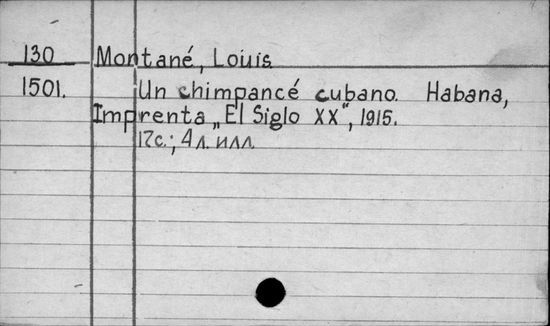 130 Montané, Louis
1501. Un chimpancé cubano. Habana,
Imprenta „El Siglo XX“, 1915.
17с.; 4 л. илл.